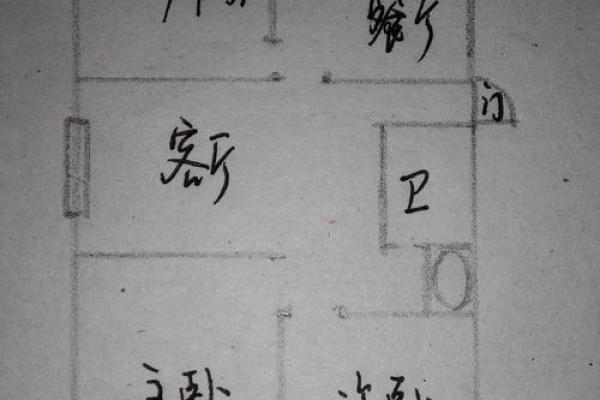 餐厅
门
客厅
卫
主卧
次卧